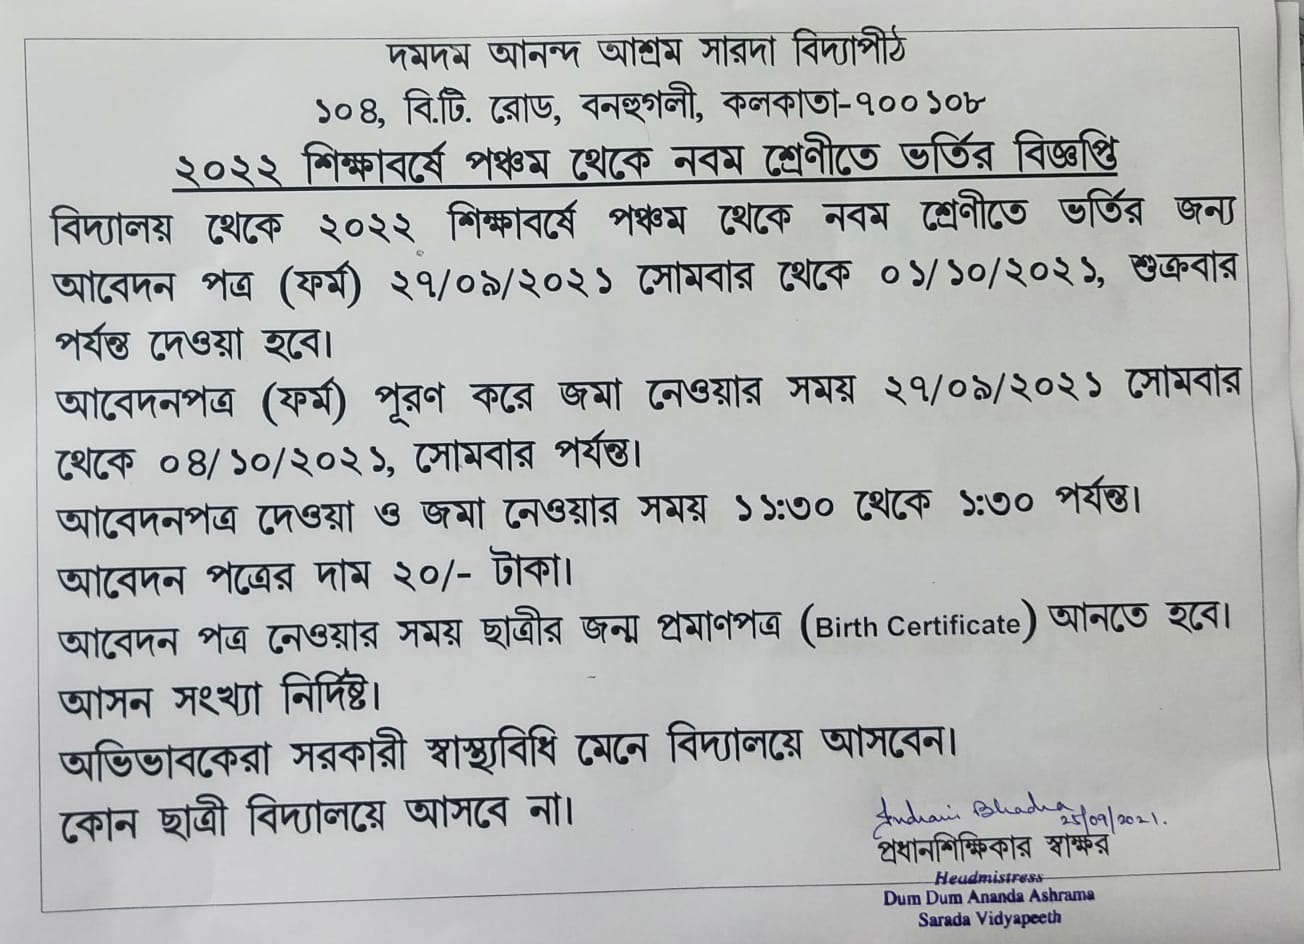 দমদম আনন্দ আশ্রম সারদা বিদ্যাপীঠ
১০৪, বি.টি. রোড, বনহুগলী, কলকাতা-৭০০১০৮
২০২২ শিক্ষাবর্ষে পঞ্চম থেকে নবম শ্রেণীতে ভর্তির বিজ্ঞপ্তি
বিদ্যালয় থেকে ২০২২ শিক্ষাবর্ষে পঞ্চম থেকে নবম শ্রেণীতে ভর্তির জন্য
আবেদন পত্র (ফর্ম) ২৭/০৯/২০২১ সোমবার থেকে ০১/১০/২০২১, শুক্রবার
পর্যন্ত দেওয়া হবে।
আবেদনপত্র (ফর্ম) পূরণ করে জমা নেওয়ার সময় ২৭/০৯/২০২১ সোমবার
থেকে ০৪/১০/২০২১, সোমবার পর্যন্ত।
আবেদনপত্র দেওয়া ও জমা নেওয়ার সময় ১১:৩০ থেকে ১:৩০ পর্যন্ত।
আবেদন পত্রের দাম ২০/- টাকা।
আবেদন পত্র নেওয়ার সময় ছাত্রীর জন্ম প্রমাণপত্র (Birth Certificate) আনতে হবে।
আসন সংখ্যা নির্দিষ্ট।
অভিভাবকেরা সরকারী স্বাস্থ্যবিধি মেনে বিদ্যালয়ে আসবেন।
কোন ছাত্রী বিদ্যালয়ে আসবে না।
Indrani Bhadra
25/09/2021.
প্রধানশিক্ষিকার স্বাক্ষর
Headmistress
Dum Dum Ananda Ashrama
Sarada Vidyapeeth